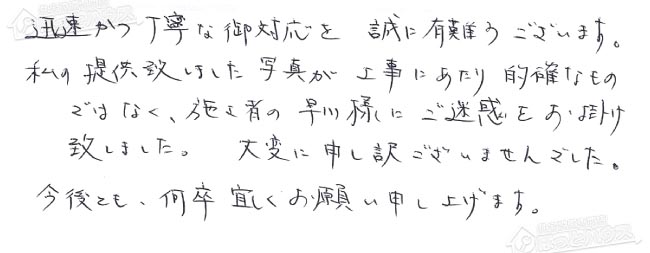 迅速かつ丁寧な御対応を 誠に有難うございます。
私の提供致しました写真が工事にあたり的確なもの
ではなく、施工者の早川様にご迷惑をお掛け
致しました。 大変に申し訳ございませんでした。
今後とも、何卒宜しくお願い申し上げます。